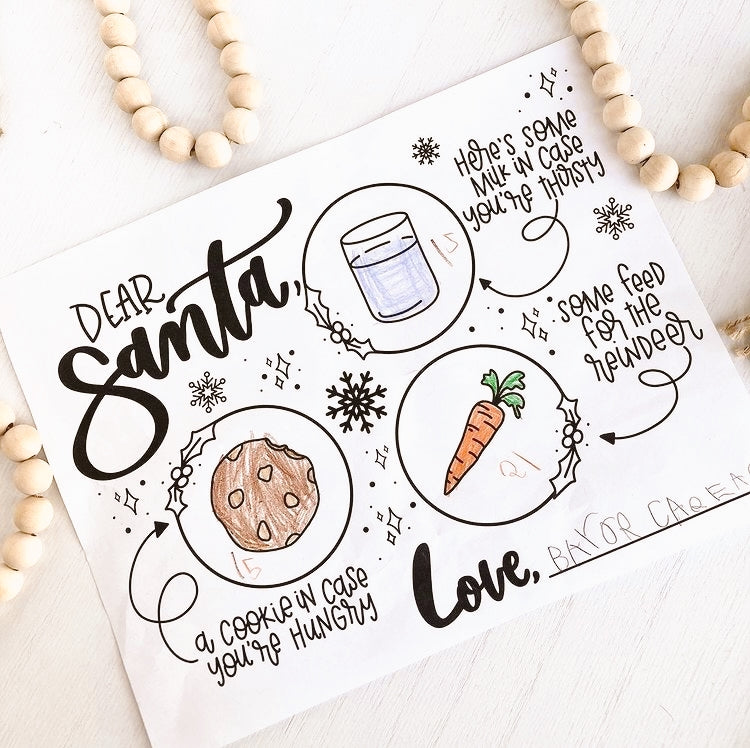 DEAR
Santa,
HERE'S SOME
MILK iN CASE
YOU'RE THIRSTY
15
SOME FEED
FOR THE
REINDEER
21
15
a COOKIE iN CASE
YOU'RE HUNGRY
Love,